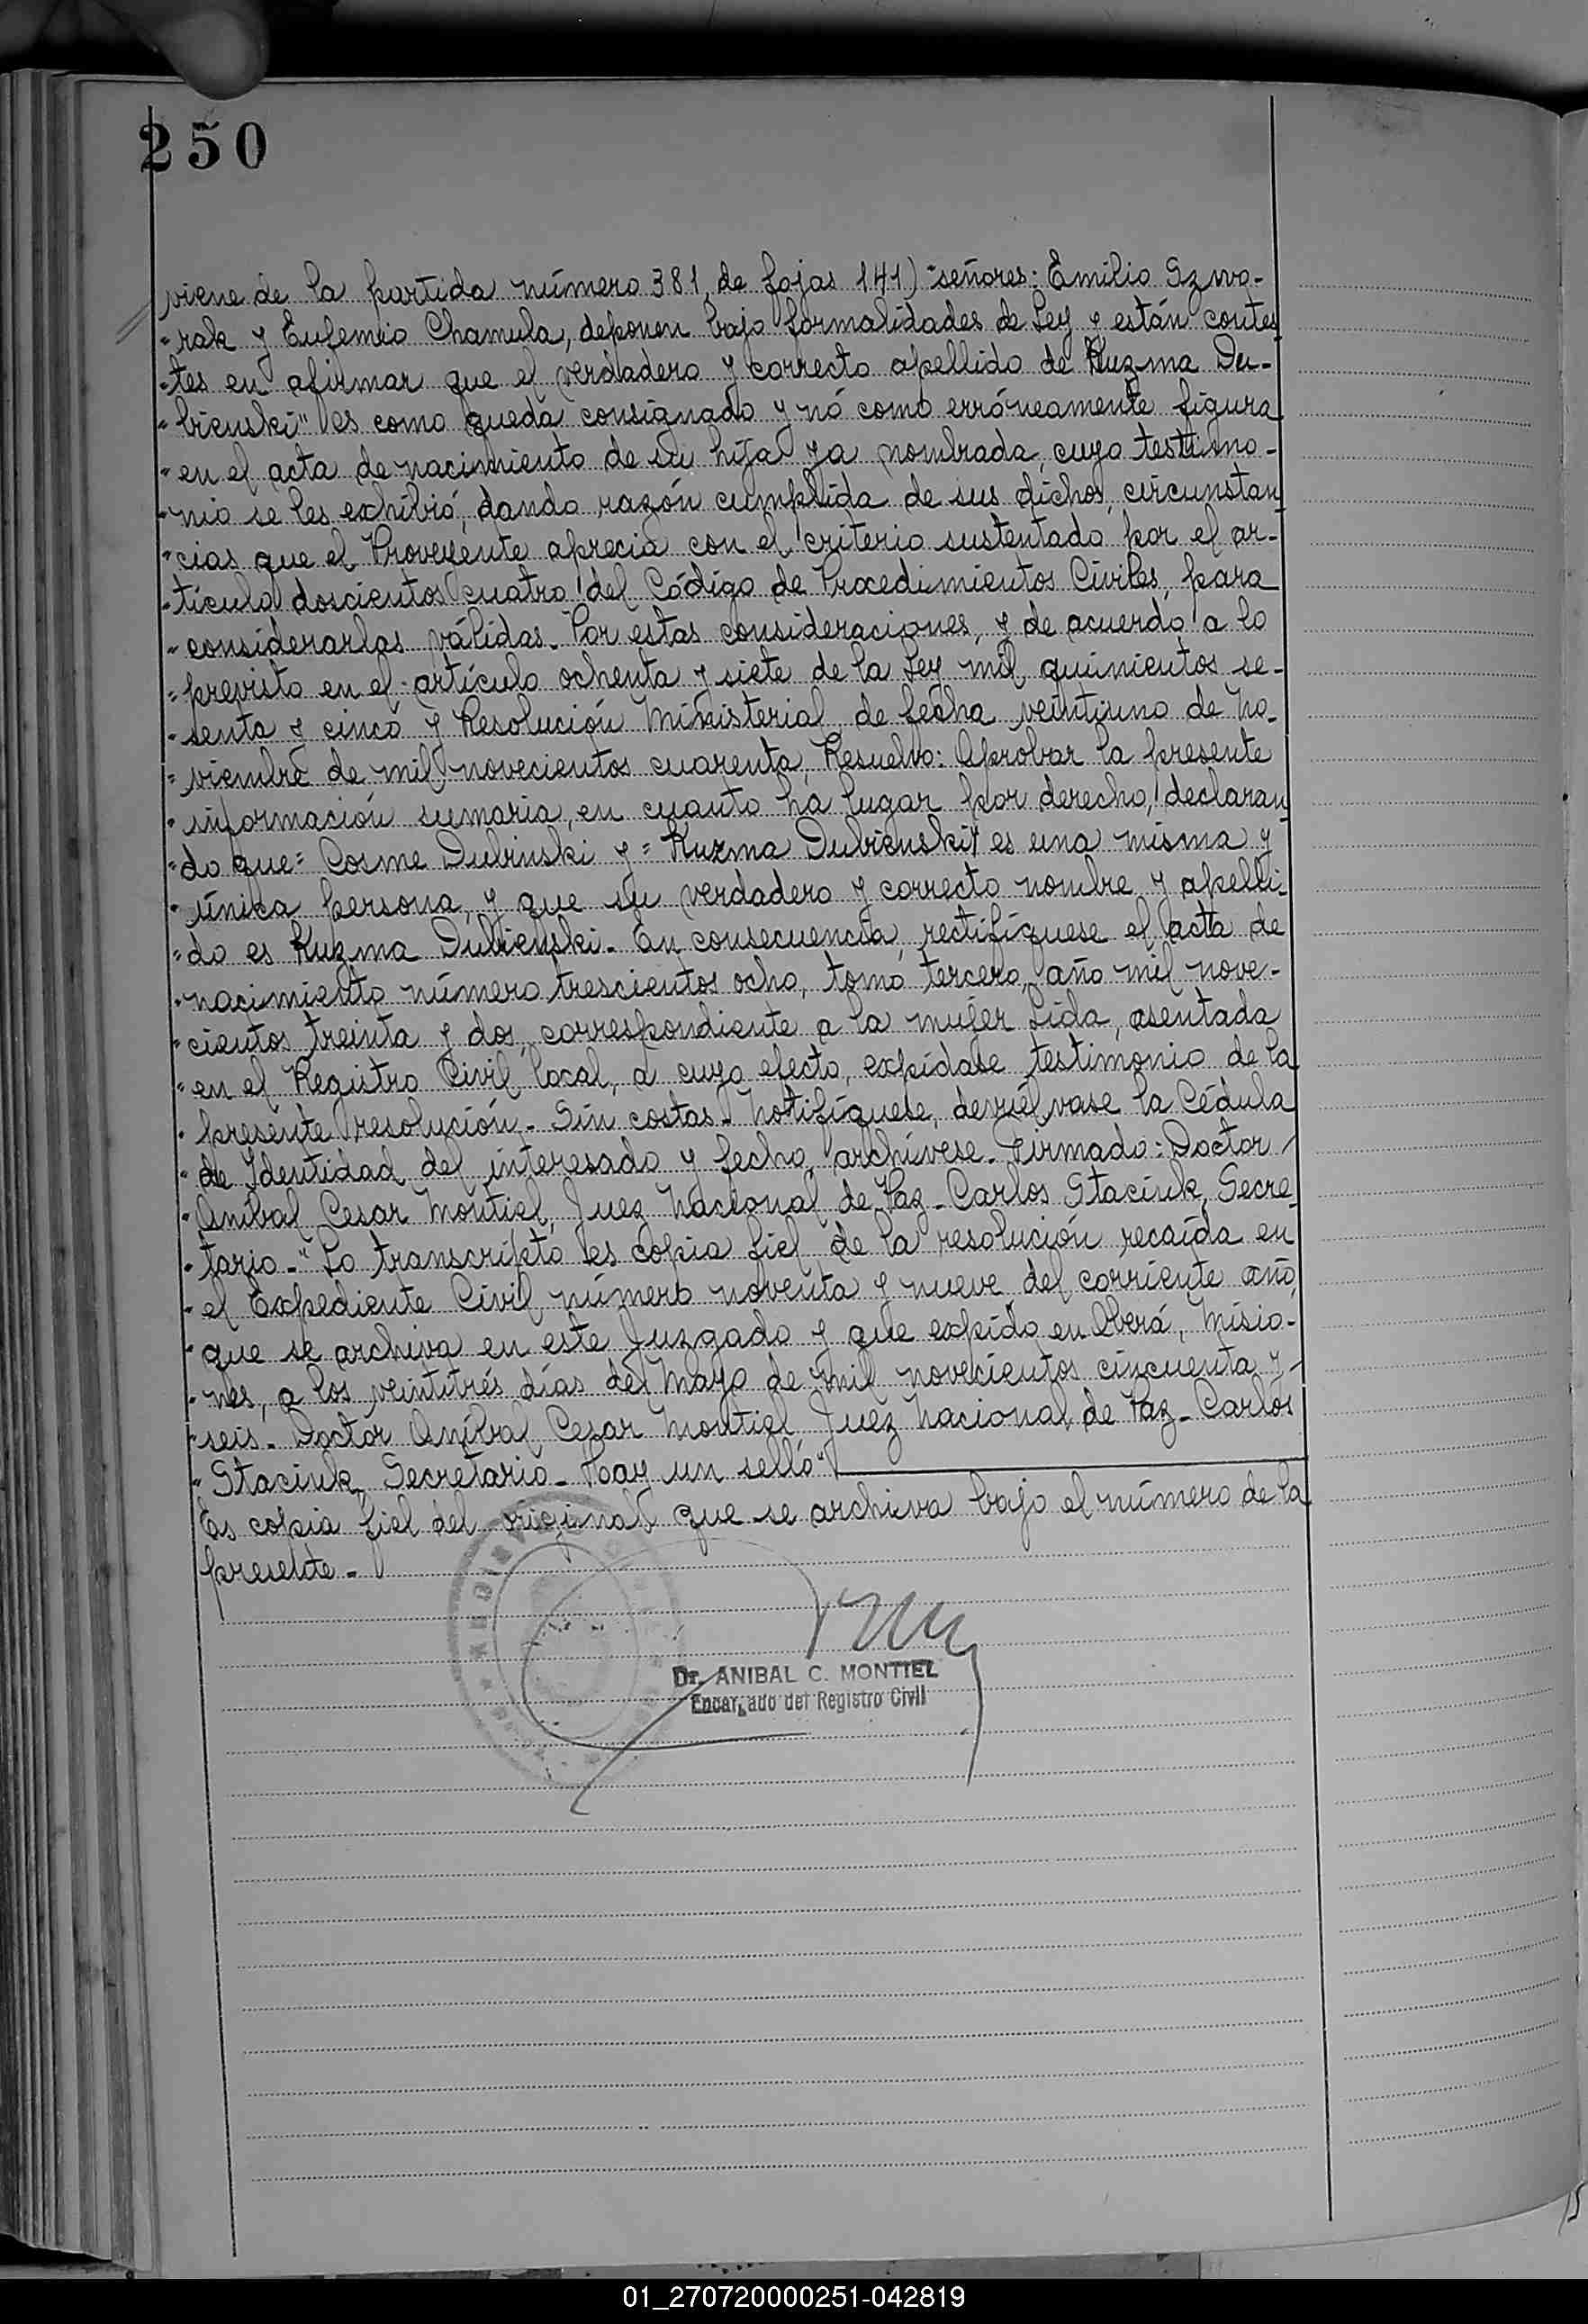 250
viene de la partida número 381, de fojas 141) "señores: Emilio Szwo-
" rak y Eufemio Chamula, deponen bajo formalidades de Ley y están contes
" tes en afirmar que el verdadero y correcto apellido de Kuzma Du-
" bienski" es como queda consignado y nó como erróneamente figura
" en el acta de nacimiento de su hija ya nombrada, cuyo testimo-
" nio se les exhibió, dando razón cumplida de sus dichos, circunstan
" cias que el Proveyente aprecia con el criterio sustentado por el ar-
" tículo doscientos cuatro del Código de Procedimientos Civiles, para
" considerarlas válidas. Por estas consideraciones, y de acuerdo a lo
" previsto en el artículo ochenta y siete de la Ley mil quinientos se-
" senta y cinco y Resolución Ministerial de fecha veintiuno de No-
" viembre de mil novecientos cuarenta, Resuelvo: Aprobar la presente
" información sumaria, en cuanto há lugar por derecho, declaran
" do que= Cosme Dubinski y= Kuzma Dubienski, es una misma y
" única persona, y que su verdadero y correcto nombre y apelli-
" do es Kuzma Dubienski. En consecuencia, rectifíquese el acta de
" nacimiento número trescientos ocho, tomo tercero, año mil nove-
" cientos treinta y dos, correspondiente a la mujer Lida, asentada
" en el Registro Civil local, a cuyo efecto, expídase testimonio de la
" presente resolución. Sin costas. Notifíquese, devuélvase la Cédula
" de Identidad del interesado y fecho, archívese. Firmado: Doctor
" Aníbal Cesar Montiel, Juez Nacional de Paz- Carlos Staciuk, Secre-
" tario-" Lo transcripto es copia fiel de la resolución recaída en
" el Expediente Civil número noventa y nueve del corriente año,
" que se archiva en este Juzgado y que expido en Oberá, Misio-
" nes, a los veintitrés días del Mayo de mil novecientos cincuenta y
" seis. Doctor Aníbal Cesar Montiel Juez Nacional de Paz- Carlos
" Staciuk, Secretario- Hay un sello"
Es copia fiel del original que se archiva bajo el número de la
presente.
Dr. ANIBAL C. MONTIEL
Encargado del Registro Civil
01_270720000251-042819